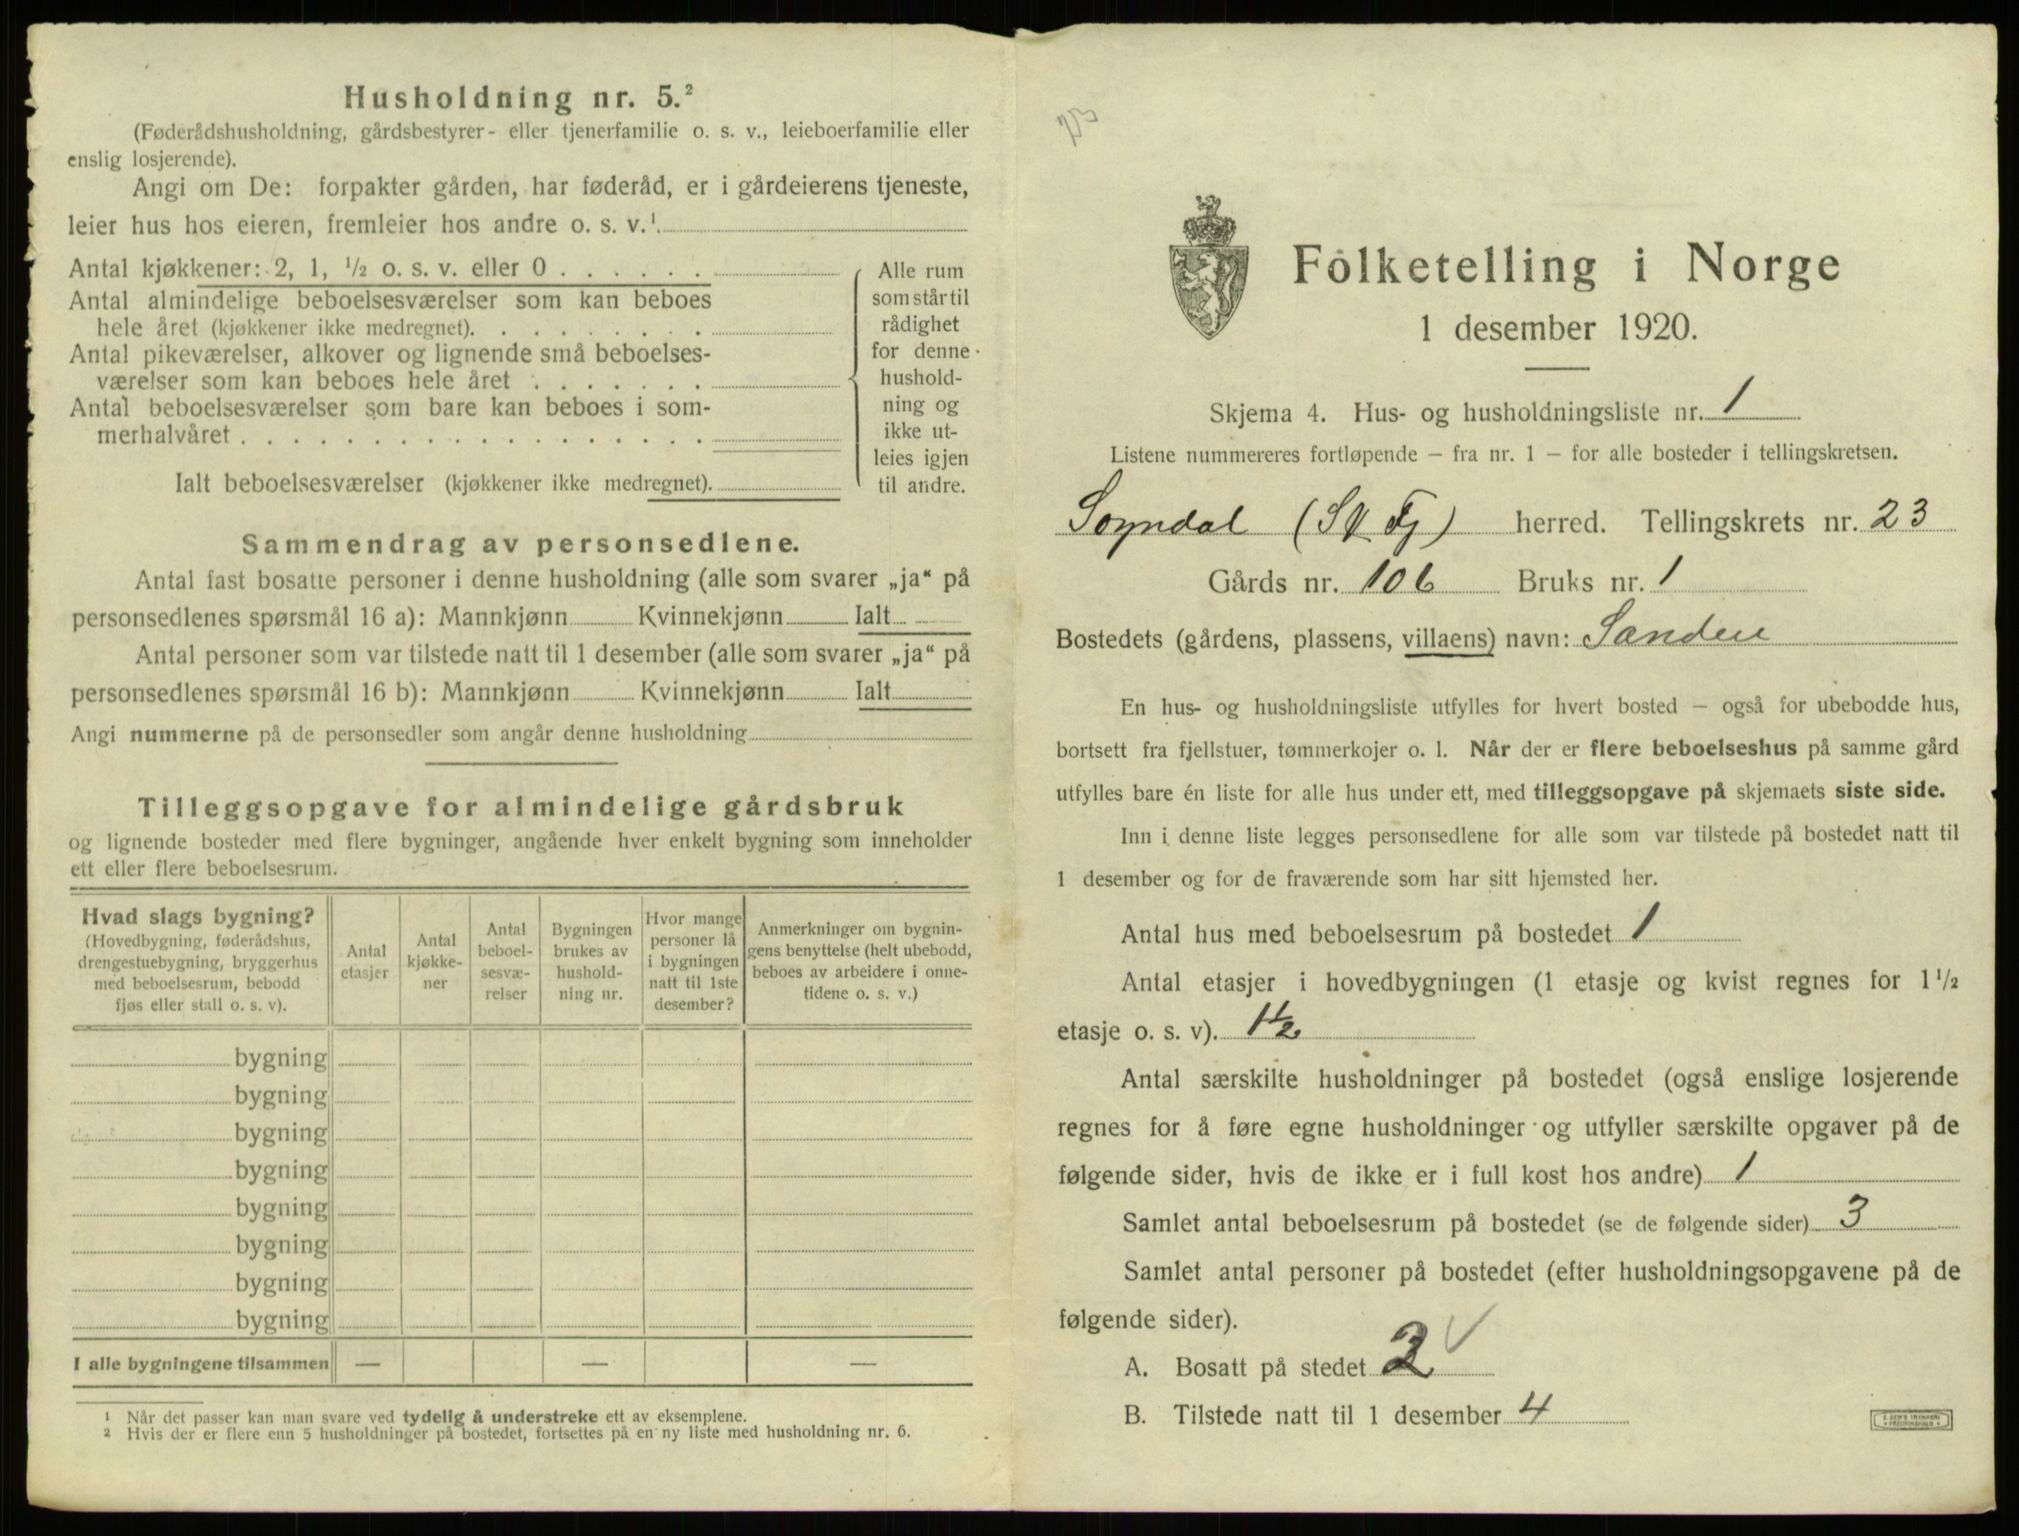 Husholdning nr. 5.²
(Føderådshusholdning, gårdsbestyrer- eller tjenerfamilie o. s. v., leieboerfamilie eller
enslig losjerende).
Angi om De: forpakter gården, har føderåd, er i gårdeierens tjeneste,
leier hus hos eieren, fremleier hos andre o. s. v.¹
Antal kjøkkener: 2, 1, ½ o. s. v. eller 0
Antal almindelige beboelsesværelser som kan beboes
hele året (kjøkkener ikke medregnet).
Antal pikeværelser, alkover og lignende små beboelses-
værelser som kan beboes hele året
Antal beboelsesværelser som bare kan beboes i som-
merhalvåret
Ialt beboelsesværelser (kjøkkener ikke medregnet).
Alle rum
som står til
rådighet
for denne
hushold-
ning og
ikke ut-
leies igjen
til andre.
Sammendrag av personsedlene.
Antal fast bosatte personer i denne husholdning (alle som svarer „ja“ på
personsedlenes spørsmål 16 a): Mannkjønn Kvinnekjønn Ialt
Antal personer som var tilstede natt til 1 desember (alle som svarer „ja“ på
personsedlenes spørsmål 16 b): Mannkjønn Kvinnekjønn Ialt
Angi nummerne på de personsedler som angår denne husholdning
Tilleggsopgave for almindelige gårdsbruk
og lignende bosteder med flere bygninger, angående hver enkelt bygning som inneholder
ett eller flere beboelsesrum.
Hvad slags bygning?
(Hovedbygning, føderådshus,
drengestuebygning, bryggerhus
med beboelsesrum, bebodd
fjøs eller stall o. s. v).
Antal
etasjer
Antal
kjøkke-
ner
Antal
beboel-
sesvæ-
relser
Bygningen
brukes av
hushold-
ning nr.
Hvor mange
personer lå
i bygningen
natt til 1ste
desember?
Anmerkninger om bygnin-
gens benyttelse (helt ubebodd,
beboes av arbeidere i onne-
tidene o. s. v.)
bygning
bygning
bygning
bygning
bygning
bygning
bygning
bygning
I alle bygningene tilsammen — — —
¹ Når det passer kan man svare ved tydelig å understreke ett av eksemplene.
² Hvis der er flere enn 5 husholdninger på bostedet, fortsettes på en ny liste med husholdning nr. 6.
Folketelling i Norge
1 desember 1920.
Skjema 4. Hus- og husholdningsliste nr. 1
Listene nummereres fortløpende — fra nr. 1 — for alle bosteder i tellingskretsen.
Sogndal (S. Fj) herred. Tellingskrets nr. 23
Gårds nr. 106 Bruks nr. 1
Bostedets (gårdens, plassens, villaens) navn: Sanden
En hus- og husholdningsliste utfylles for hvert bosted — også for ubebodde hus,
bortsett fra fjellstuer, tømmerkojer o. l. Når der er flere beboelseshus på samme gård
utfylles bare én liste for alle hus under ett, med tilleggsopgave på skjemaets siste side.
Inn i denne liste legges personsedlene for alle som var tilstede på bostedet natt til
1 desember og for de fraværende som har sitt hjemsted her.
Antal hus med beboelsesrum på bostedet 1
Antal etasjer i hovedbygningen (1 etasje og kvist regnes for 1½
etasje o. s. v). 1½
Antal særskilte husholdninger på bostedet (også enslige losjerende
regnes for å føre egne husholdninger og utfyller særskilte opgaver på de
følgende sider, hvis de ikke er i full kost hos andre) 1
Samlet antal beboelsesrum på bostedet (se de følgende sider) 3
Samlet antal personer på bostedet (efter husholdningsopgavene på de
følgende sider).
A. Bosatt på stedet 2 √
B. Tilstede natt til 1 desember 4